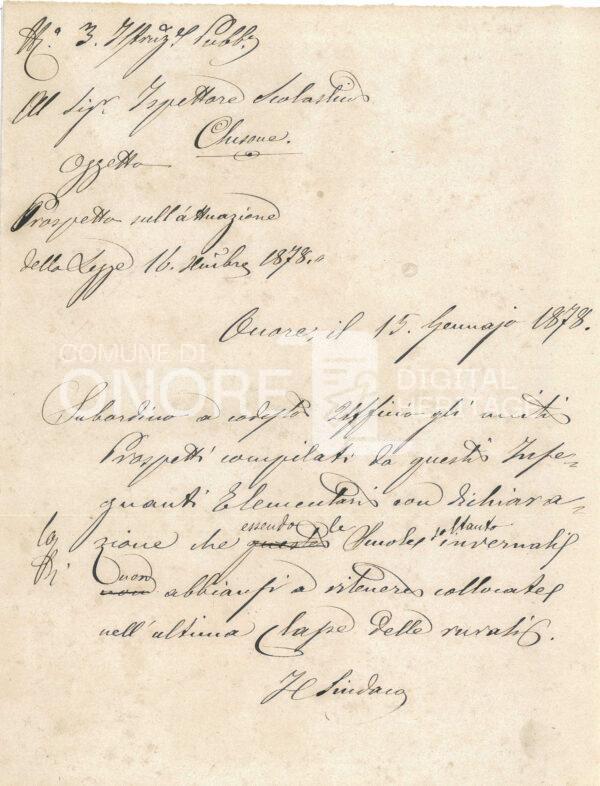 N.° 3. Istruz.e Pubb.a
Al Sig.r Ispettore Scolastico
Clusone.
Oggetto
Prospetto sull'attuazione
della Legge 16. 1878.
Onore, il 15. Gennajo 1878.
COMUNE DI
ONORE
DIGITAL
HERITAGE
Subordino a codesto Ufficio gli uniti
Prospetti compilati da questi Inse-
gnanti Elementari con dichiara-
essendo le soltanto
zione che questo Scuole invernali
abbiansi a ritenere collocate
nell'ultima Classe delle rurali.
Il Sindaco